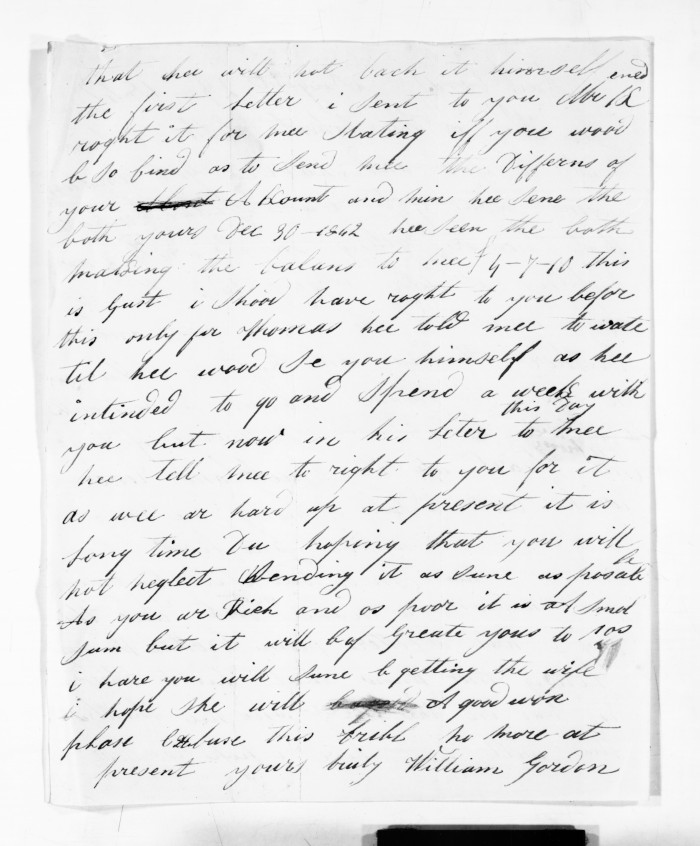 that hee will not back it himself
the first letter i sent to you Mr
roght it for mee stating iff you wood
b so kind as to send mee the Differns of
your Akount and min hee sene the
both yours Dec 30-1862 hee seen the both
making the balans to mee £ 4-7-10 this
is Gust i shood have roght to you befor
this only for thomas hee told mee to wate
til hee wood se you himself as hee
intinded to go and spend a week with
you but now in his leter this Day to mee
hee tell mee to right to you for it
as wee ar hard up at present it is
long time Du hoping that you will
not neglect sending it as sune as posable
As you ar Rich and os poor it is a smol
sum but it will b of Greate yous to os
i hare you will sune b getting the wife
i hope she will A good won
please this no more at
present yours William Gordon